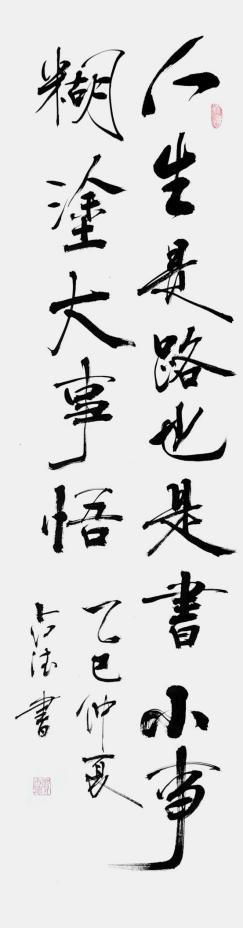 人生是路也是書小事
糊塗大事悟
乙巳仲夏
書